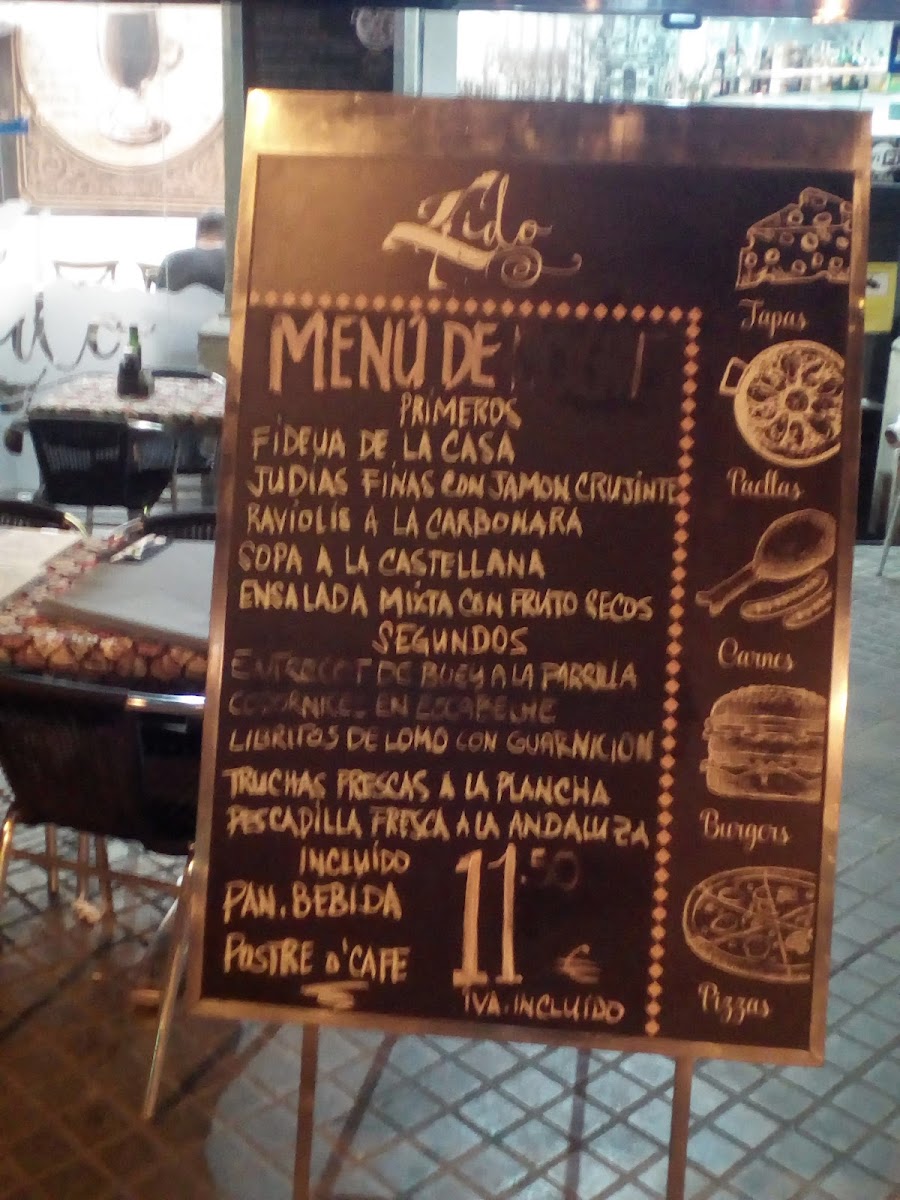 Lido
MENÚ DE
PRIMEROS
FIDEUA DE LA CASA
JUDIAS FINAS CON JAMON CRUJINTE
RAVIOLIS A LA CARBONARA
SOPA A LA CASTELLANA
ENSALADA MIXTA CON FRUTO SECOS
SEGUNDOS
ENTRECOT DE BUEY A LA PARRILLA
CODORNICES EN ESCABECHE
LIBRITOS DE LOMO CON GUARNICION
TRUCHAS FRESCAS A LA PLANCHA
PESCADILLA FRESCA A LA ANDALUZA
INCLUÍDO
PAN. BEBIDA
POSTRE O'CAFE
11.50
€
IVA. INCLUIDO
Tapas
Paellas
Carnes
Burgers
Pizzas